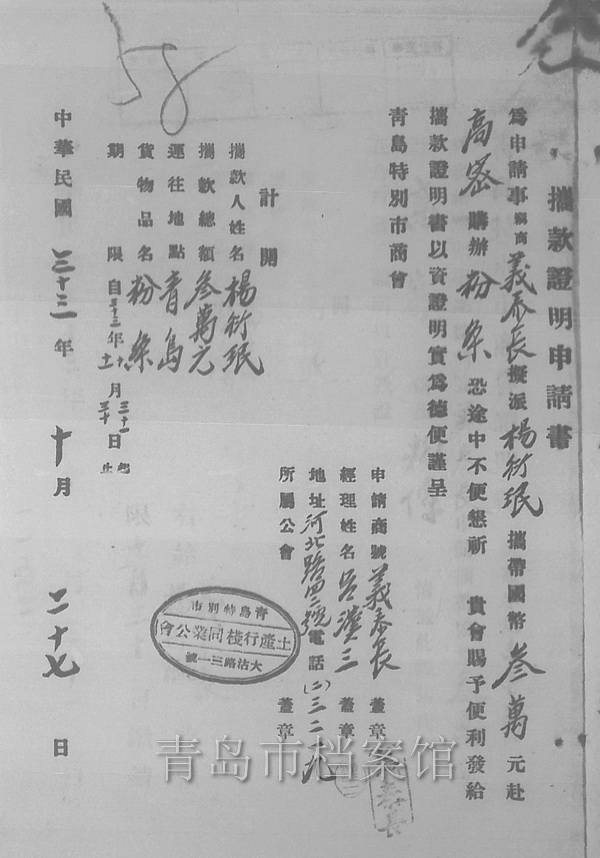 58
攜款證明申請書
為申請事竊商義泰長擬派楊衍珉攜帶國幣叁萬元赴
高密購辦粉條恐途中不便懇祈 貴會賜予便利發給
攜款證明書以資證明實為德便謹呈
青島特別市商會
申請商號義泰長 蓋章
經理姓名呂漢三 蓋章
地址河北路四二號電話(二)三二一九
所屬公會 蓋章
計開
攜款人姓名楊衍珉
攜款總額叁萬元
運往地點青島
貨物品名粉條
期限自三十三年十月三十一日起
十一 三十 止
中華民國三十三年十月二十七日
青島特別市
土產行棧同業公會
大沽路三一號
青岛市档案馆